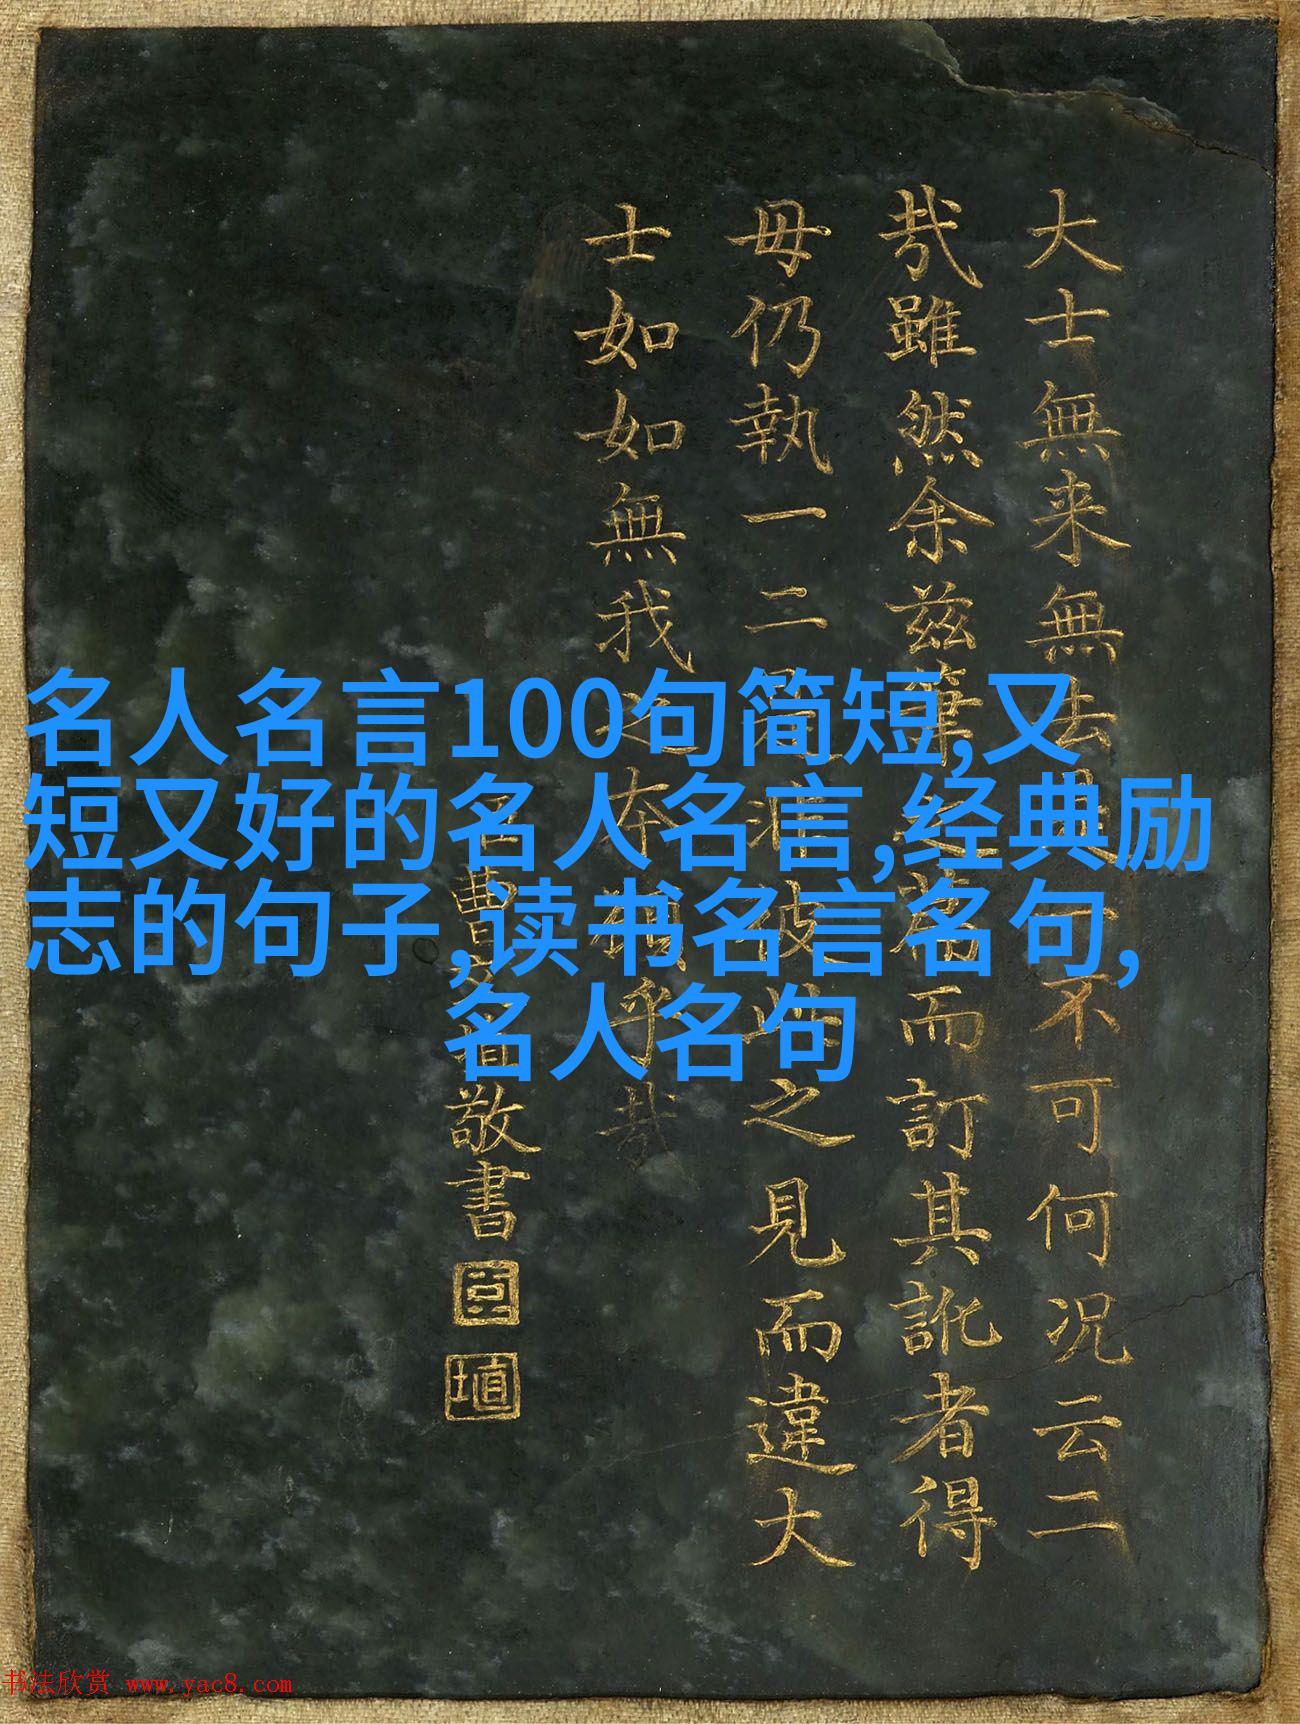 名人名言100句简短,又
短又好的名人名言,经典励
志的句子,读书名言名句,
名人名句
大士無来無去不可何况云二
哉雖然余兹筆之而訂其訛者得
毋仍執一二是非彼此之見而違大
士如如無我之本願乎哉
臣曹文埴敬書
臣
埴
书法欣赏 www.yac8.com